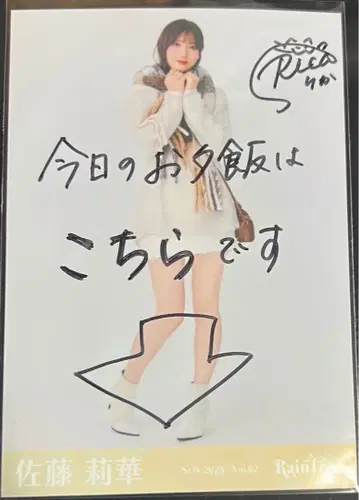 Rica
りか
今日のお夕飯は
こちらです
佐藤 莉華
Vol.02
RainTree